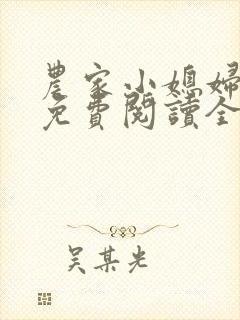 農家小媳婦
免費閱讀全
吳某光